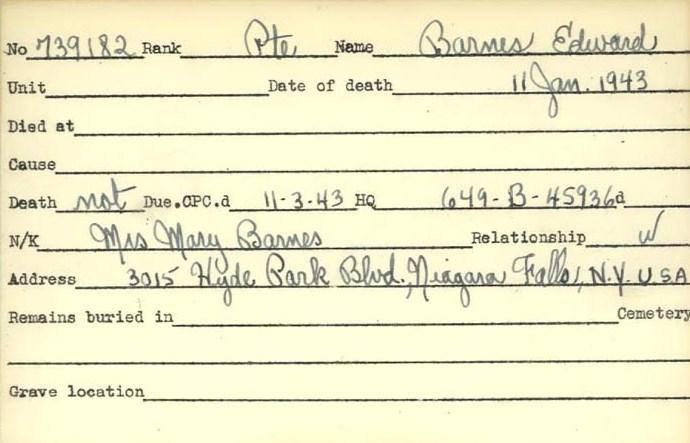 No 739182 Rank Pte Name Barnes Edward
Unit Date of death 11 Jan. 1943
Died at
Cause
Death not Due.CPC.d 11-3-43 HQ 649-B-45936d
N/K Mrs Mary Barnes Relationship W
Address 3015 Hyde Park Blvd., Niagara Falls, N.Y. U.S.A
Remains buried in Cemetery
Grave location